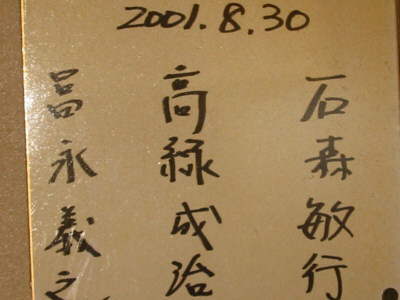 2001.8.30
石森敏行
高緑成治
昌永義之